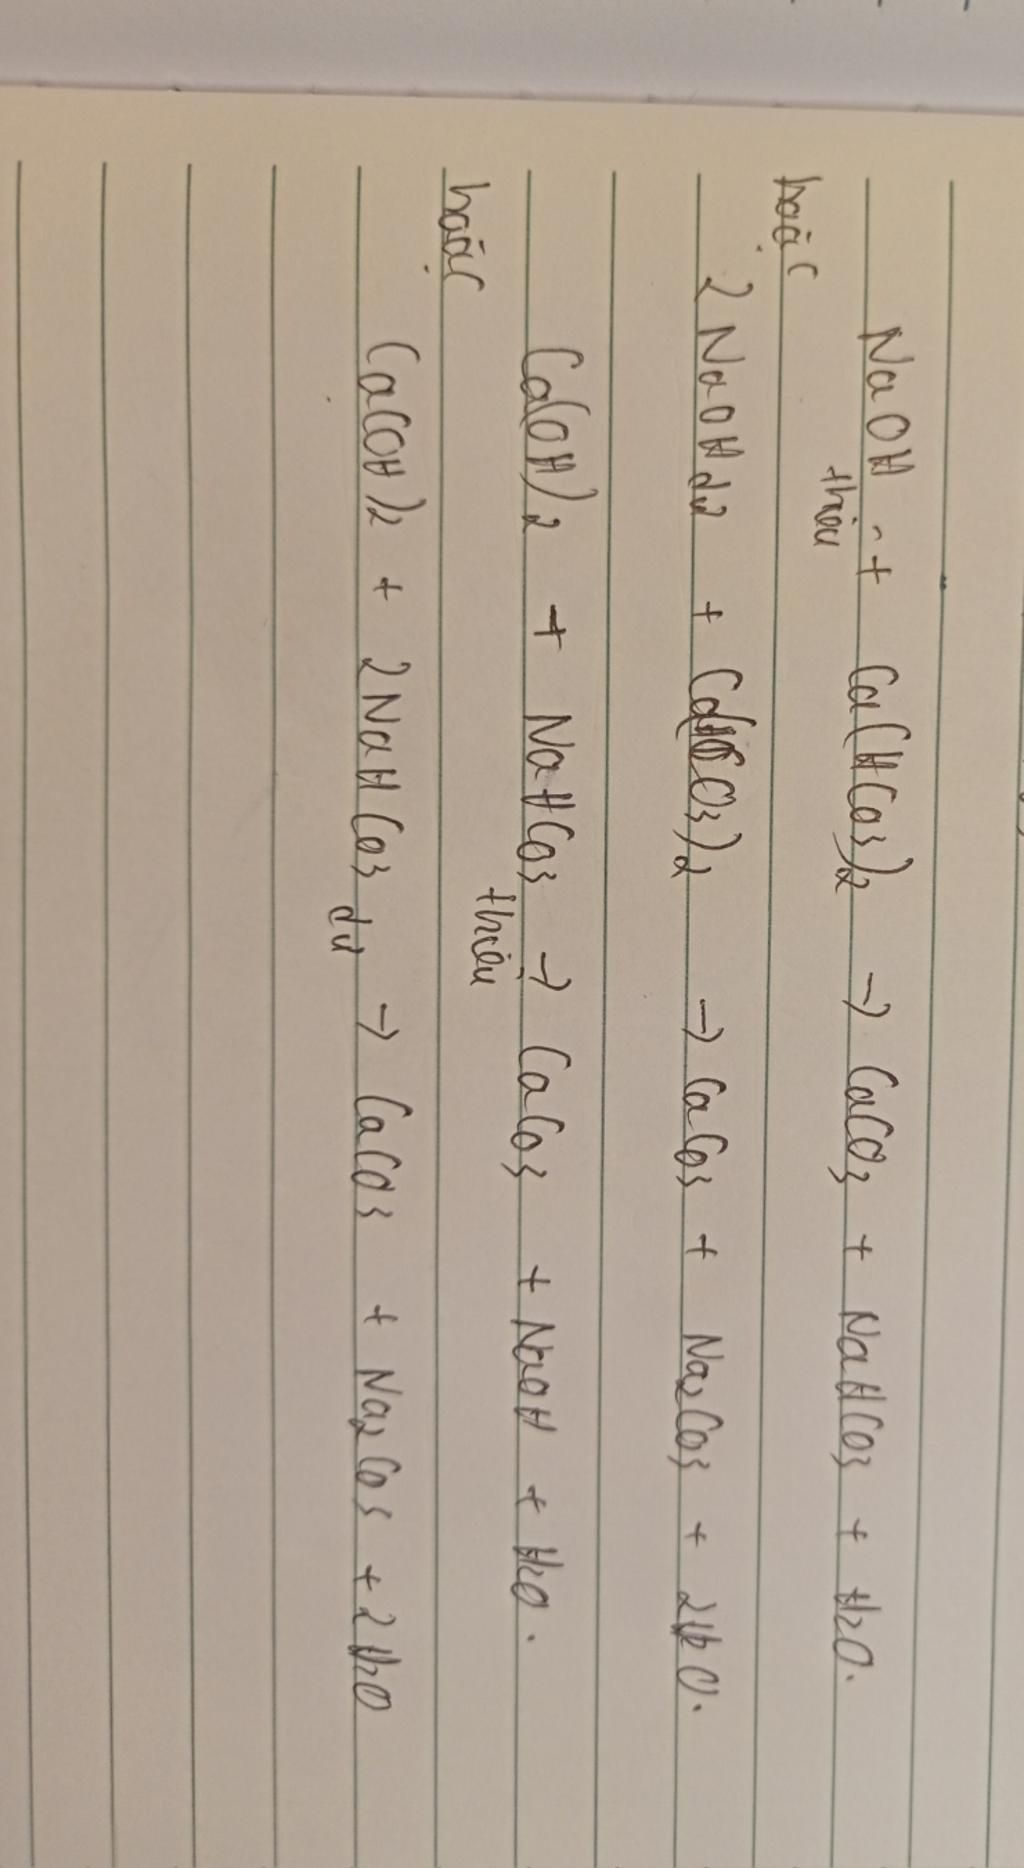 NaOH thiếu + Ca(HCO3)2 → CaCO3 + NaHCO3 + H2O.
hoặc
2NaOH dư + Ca(HCO3)2 → CaCO3 + Na2CO3 + 2H2O.
Ca(OH)2 + NaHCO3 thiếu → CaCO3 + NaOH + H2O.
hoặc
Ca(OH)2 + 2NaHCO3 dư → CaCO3 + Na2CO3 + 2H2O